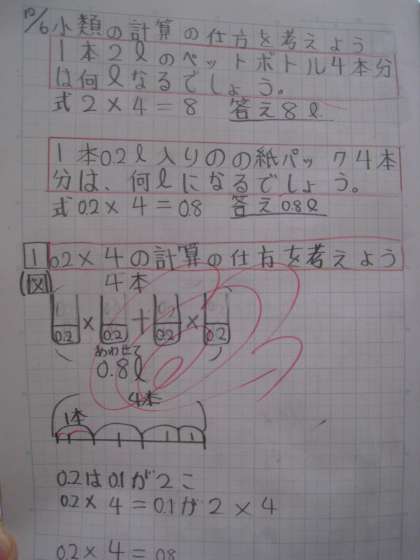 10/6 小類の計算の仕方を考えよう
1本2ℓのペットボトル4本分
は何ℓなるでしょう。
式2×4=8 答え8ℓ
1本0.2ℓ入りのの紙パック4本
分は、何ℓになるでしょう。
式0.2×4=0.8 答え0.8ℓ
1 0.2×4の計算の仕方を考えよう
図 4本
0.2 × 0.2 + 0.2 × 0.2
あわせて
0.8ℓ
4本
1本
0.2は0.1が2こ
0.2×4=0.1が2×4
0.2×4=0.8